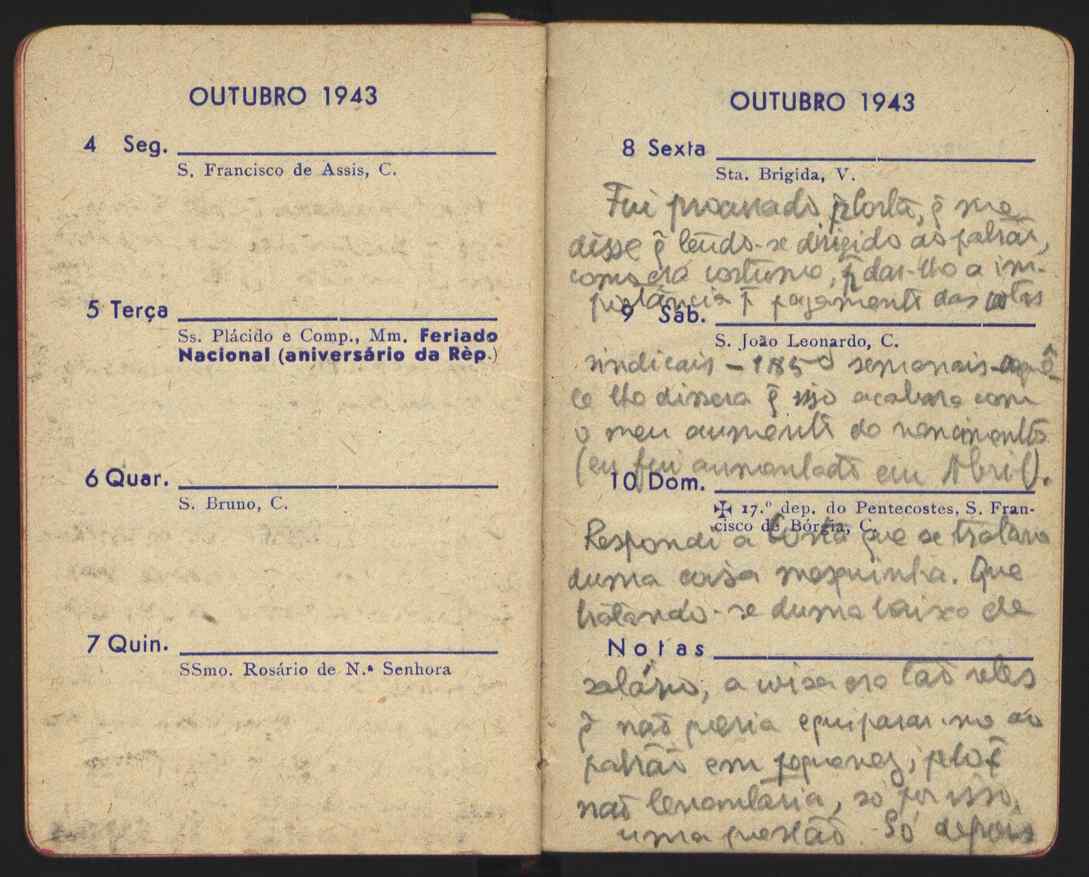 OUTUBRO 1943
4 Seg.
S. Francisco de Assis, C.
5 Terça
Ss. Plácido e Comp., Mm. Feriado
Nacional (aniversário da Rèp.)
6 Quar.
S. Bruno, C.
7 Quin.
SSmo. Rosário de N.ª Senhora
OUTUBRO 1943
8 Sexta
Sta. Brigida, V.
Fui procurado, q̃ me
disse q̃ tendo-se dirigido ao patrão,
como era costume, p̃ dar-lho a im-
portância p̃ pagamento das cotas
9 Sáb.
S. João Leonardo, C.
sindicais - semanais -
lho dissera q̃ isso acabara com
o meu aumento do vencimento
(eu fui aumentado em Abril).
10 Dom.
✠ 17.º dep. do Pentecostes, S. Fran-
cisco de Bórgia, C.
Respondi a Costa que se tratava
duma coisa mesquinha. Que
tratando-se duma baixa de
Notas
salário, a coisa era tão reles
q̃ não queria equiparar-me ao
patrão em pequenez, pelo q̃
não levantaria, só por isso,
uma questão. Só depois